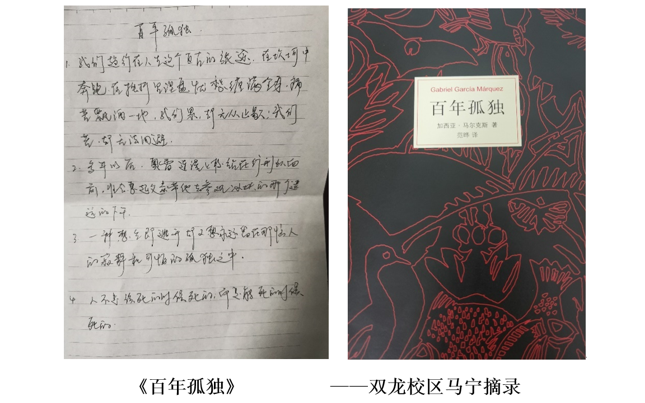 百年孤独
1. 我们趋行在人生这个亘古的旅途,在坎坷中
奔跑,在挫折里涅槃,忧愁缠满全身,痛
苦飘洒一地,我们累,却无从止歇;我们
苦,却无法回避。
2. 多年以后,奥雷里亚诺上校站在行刑队面
前,准会想起父亲带他去参观冰块的那个遥
远的下午
3 一种
的寂静和可怕的孤独之中。
4 人不是该死的时候死的,而是能死的时候
死的
Gabriel García Márquez
百年孤独
加西亚·马尔克斯 著
范晔 译
《百年孤独》 ——双龙校区马宁摘录